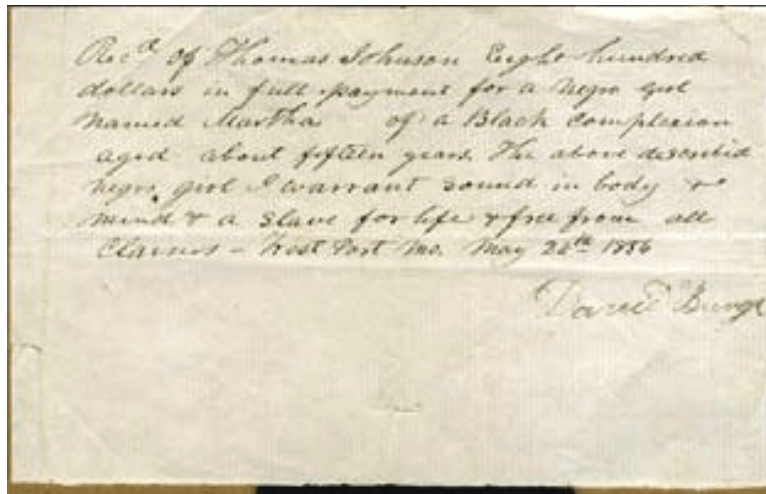 Recd of Thomas Johnson Eight hundred
dollars in full payment for a Negro girl
named Martha of a Black complexion
aged about fifteen years. The above described
negro girl I warrant sound in body &
mind & a slave for life & free from all
Claims - West Port Mo. May 24th 1856
David Burge